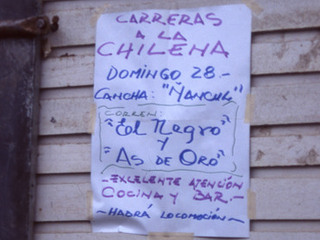 CARRERAS
A LA
CHILENA
DOMINGO 28.-
CANCHA: "ÑANCUL"
CORREN:
"El Negro"
Y
"As de Oro"
-EXCELENTE ATENCIÓN
COCINA Y BAR.-
-HABRÁ LOCOMOCIÓN-